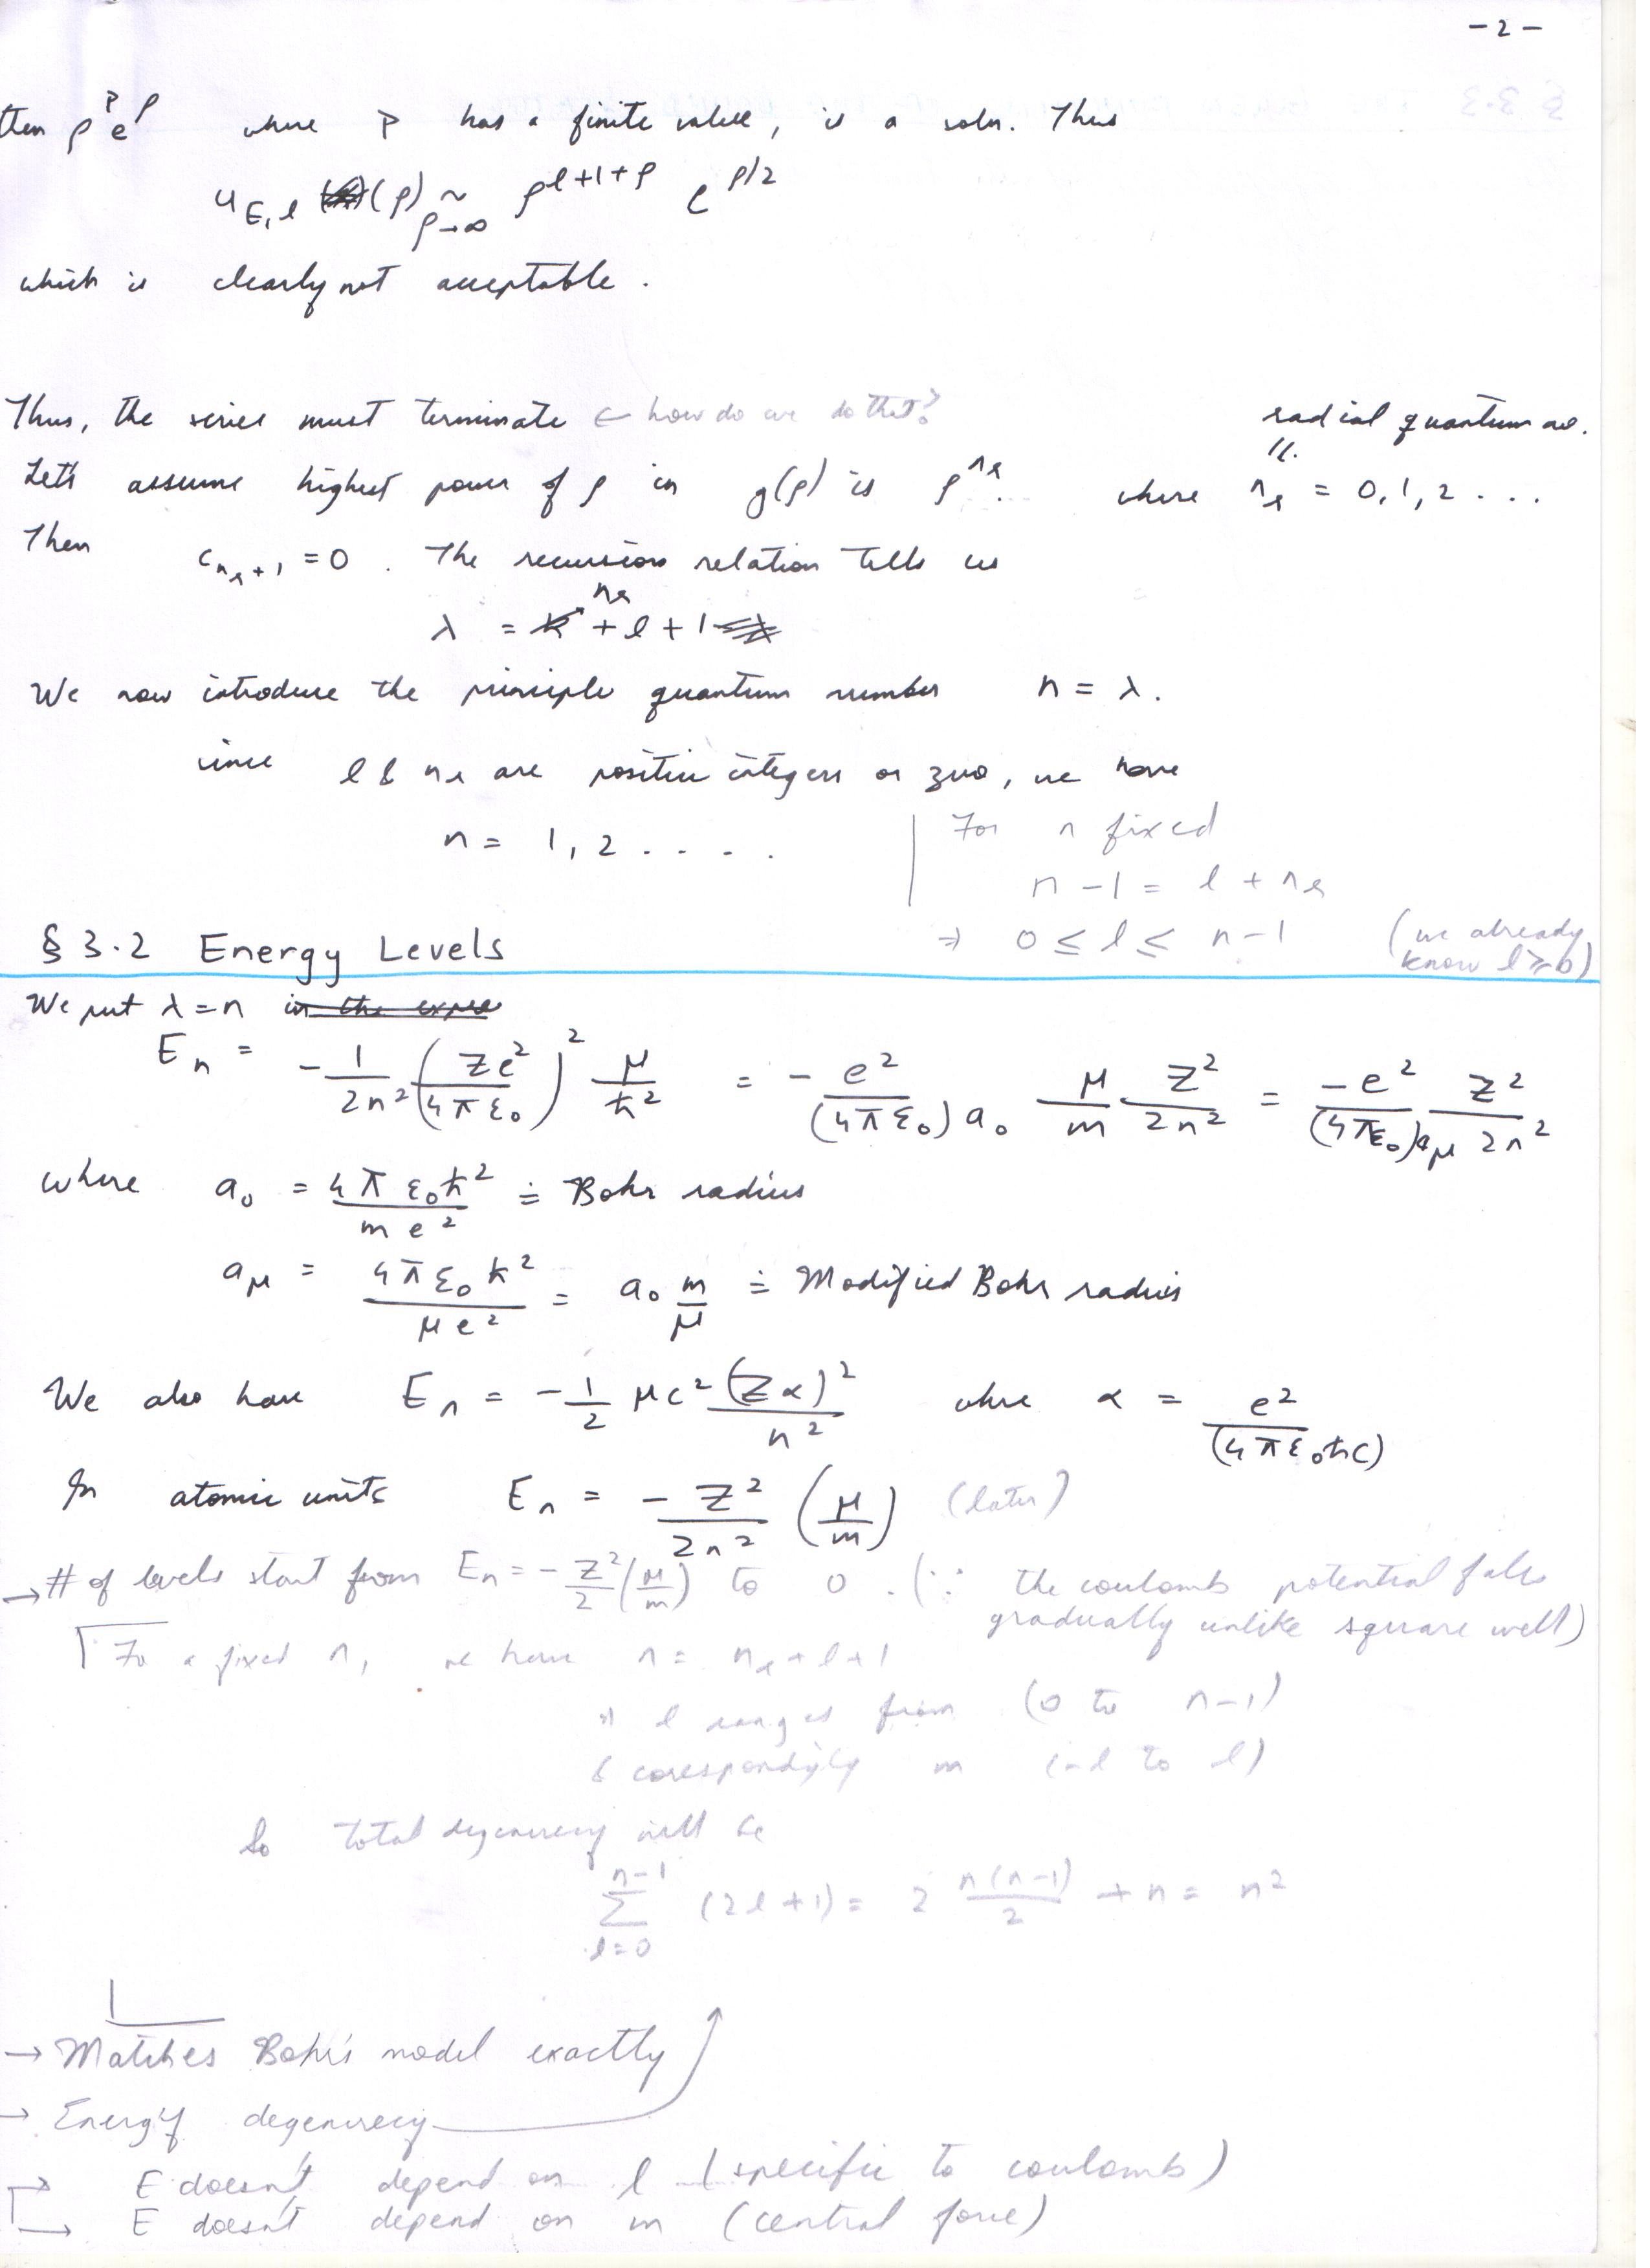 - 2 -
then ρ^p e^ρ where p has a finite value, is a soln. Thus
u_{E,l} (ρ) ~_{ρ→∞} ρ^{l+1+p} e^{ρ/2}
which is clearly not acceptable.
Thus, the series must terminate ← how do we do that?
radial quantum no.
Let's assume highest power of ρ in g(ρ) is ρ^{n_r}. where n_r = 0, 1, 2 ...
Then c_{n_r+1} = 0. The recursion relation tells us
λ = n_r + l + 1
We now introduce the principle quantum number n = λ.
since l & n_r are positive integers or zero, we have
n = 1, 2 . . . .
For n fixed
n - 1 = l + n_r
⇒ 0 ≤ l ≤ n - 1 (we already know l ≥ 0)
§ 3.2 Energy Levels
We put λ = n in the expre
E_n = - 1/2n² (Ze²/4πε₀)² μ/ħ² = - e²/(4πε₀)a₀ μ/m Z²/2n² = -e²/(4πε₀)a_μ Z²/2n²
where a₀ = 4πε₀ħ²/me² ≐ Bohr radius
a_μ = 4πε₀ħ²/μe² = a₀ m/μ ≐ Modified Bohr radius
We also have E_n = - 1/2 μc² (Zα)²/n² where α = e²/(4πε₀ħc)
In atomic units E_n = - Z²/2n² (μ/m) (later)
→ # of levels start from E_n = - Z²/2 (μ/m) to 0. (∵ the coulomb potential falls
gradually unlike square well)
For a fixed n, we have n = n_r + l + 1
⇒ l ranges from (0 to n-1)
& correspondigly m (-l to l)
So total degeneracy will be
∑_{l=0}^{n-1} (2l+1) = 2 n(n-1)/2 + n = n²
→ Matches Bohr's model exactly
→ Energy degeneracy
→ E doesn't depend on l (specific to coulomb)
→ E doesn't depend on m (central force)